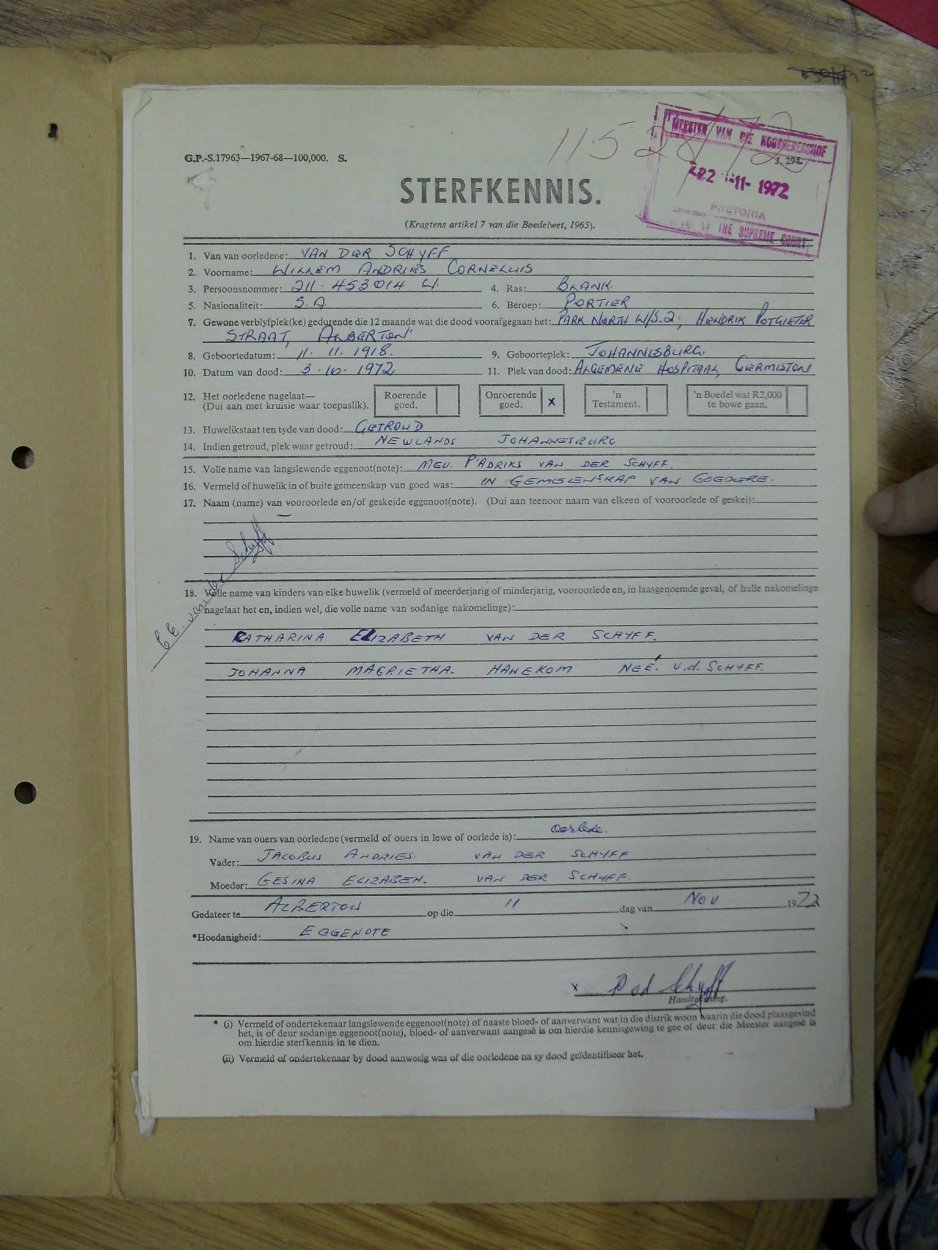 11528/72
MEESTER VAN DIE HOOGGEREGSHOF
G.P.-S.17963—1967-68—100,000. S.
J. 294.
-11- 1972
PRETORIA
THE SUPREME COURT
STERFKENNIS.
(Kragtens artikel 7 van die Boedelwet, 1965).
1. Van van oorledene: VAN DER SCHYFF
2. Voorname: WILLEM ANDRIES CORNELIUS
3. Persoonsnommer: 211·453014 W. 4. Ras: BLANK.
5. Nasionaliteit: S A. 6. Beroep: PORTIER
7. Gewone verblyfplek(ke) gedurende die 12 maande wat die dood voorafgegaan het: PARK NORTH W/S.2; HENDRIK POTGIETER
STRAAT, ALBERTON
8. Geboortedatum: 11. 11. 1918. 9. Geboorteplek: JOHANNISBURG.
10. Datum van dood: 3·10·1972 11. Plek van dood: ALGEMENE HOSPITAAL, GERMISTON
12. Het oorledene nagelaat— Roerende Onroerende 'n 'n Boedel wat R2,000
(Dui aan met kruisie waar toepaslik). goed. goed. x Testament. te bowe gaan.
13. Huwelikstaat ten tyde van dood: GETROUD
14. Indien getroud, plek waar getroud: NEWLANDS JOHANNESBURG
15. Volle name van langslewende eggenoot(note): MEV. P'ADRIKS VAN DER SCHYFF.
16. Vermeld of huwelik in of buite gemeenskap van goed was: IN GEMEENSKAP VAN GOEDERE.
17. Naam (name) van vooroorlede en/of geskeide eggenoot(note). (Dui aan teenoor naam van elkeen of vooroorlede of geskei):
—
van der Schyff
18. Volle name van kinders van elke huwelik (vermeld of meerderjarig of minderjarig, vooroorlede en, in laasgenoemde geval, of hulle nakomelinge
nagelaat het en, indien wel, die volle name van sodanige nakomelinge):
CATHARINA ELIZABETH VAN DER SCHYFF.
JOHANNA MAGRIETHA. HANEKOM NEÉ. v.d. SCHYFF.
19. Name van ouers van oorledene (vermeld of ouers in lewe of oorlede is): Oorlede.
Vader: JACOBUS ANDRIES VAN DER SCHYFF
Moeder: GESINA ELIZABEH. VAN DER SCHYFF.
Gedateer te ALBERTON op die 11 dag van NOV 1972
*Hoedanigheid: EGGENOTE
x P v d Schyff
Handtekening.
* (i) Vermeld of ondertekenaar langslewende eggenoot(note) of naaste bloed- of aanverwant wat in die distrik woon waarin die dood plaasgevind
het, is of deur sodanige eggenoot(note), bloed- of aanverwant aangesê is om hierdie kennisgewing te gee of deur die Meester aangesê is
om hierdie sterfkennis in te dien.
(ii) Vermeld of ondertekenaar by dood aanwesig was of die oorledene na sy dood geïdentifiseer het.